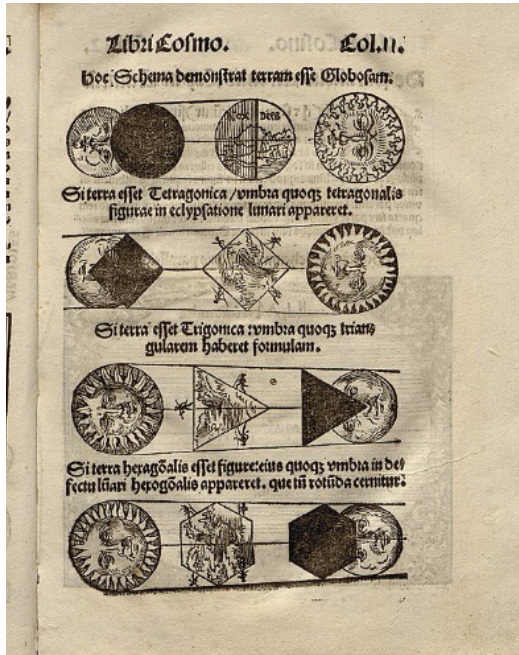 Libri Cosmo. Col.11.
Hoc Schema demonstrat terram esse Globosam.
Nox Dies
Si terra esset Tetragonica / vmbra quoqʒ tetragonalis
figurae in eclypsatione lunari appareret.
Si terra esset Trigonica : vmbra quoqʒ trian⸗
gularem haberet formulam.
Si terra hexagõalis esset figure: eius quoqʒ vmbra in de⸗
fectu lũari hexogõalis appareret. que tñ rotũda cernitur: